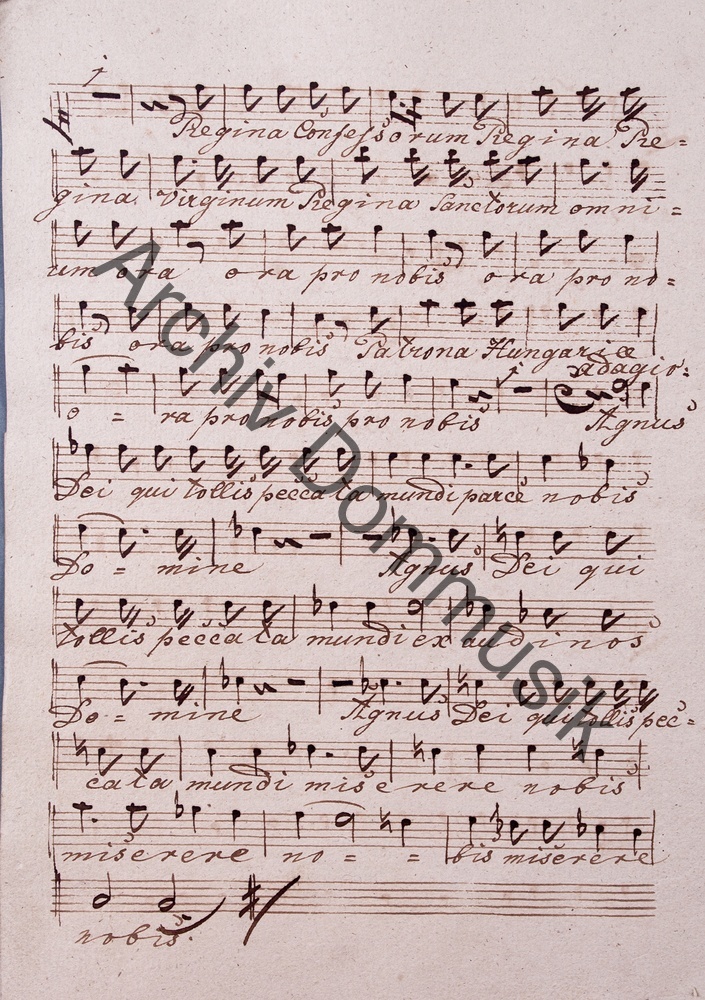 1
Regina Confessorum Regina Re=
gina Virginum Regina Sanctorum omni=
um ora ora pro nobis ora pro no=
bis ora pro nobis Patrona Hungariæ
adagio:
o = ra pro nobis pro nobis Agnus
1
Dei qui tollis peccata mundi parce nobis
Do = mine Agnus Dei qui
tollis peccata mundi ex audi nos
Do = mine Agnus Dei qui tollis pec=
cata mundi miserere nobis
miserere no = = bis miserere
nobis.
Archiv Dommusik